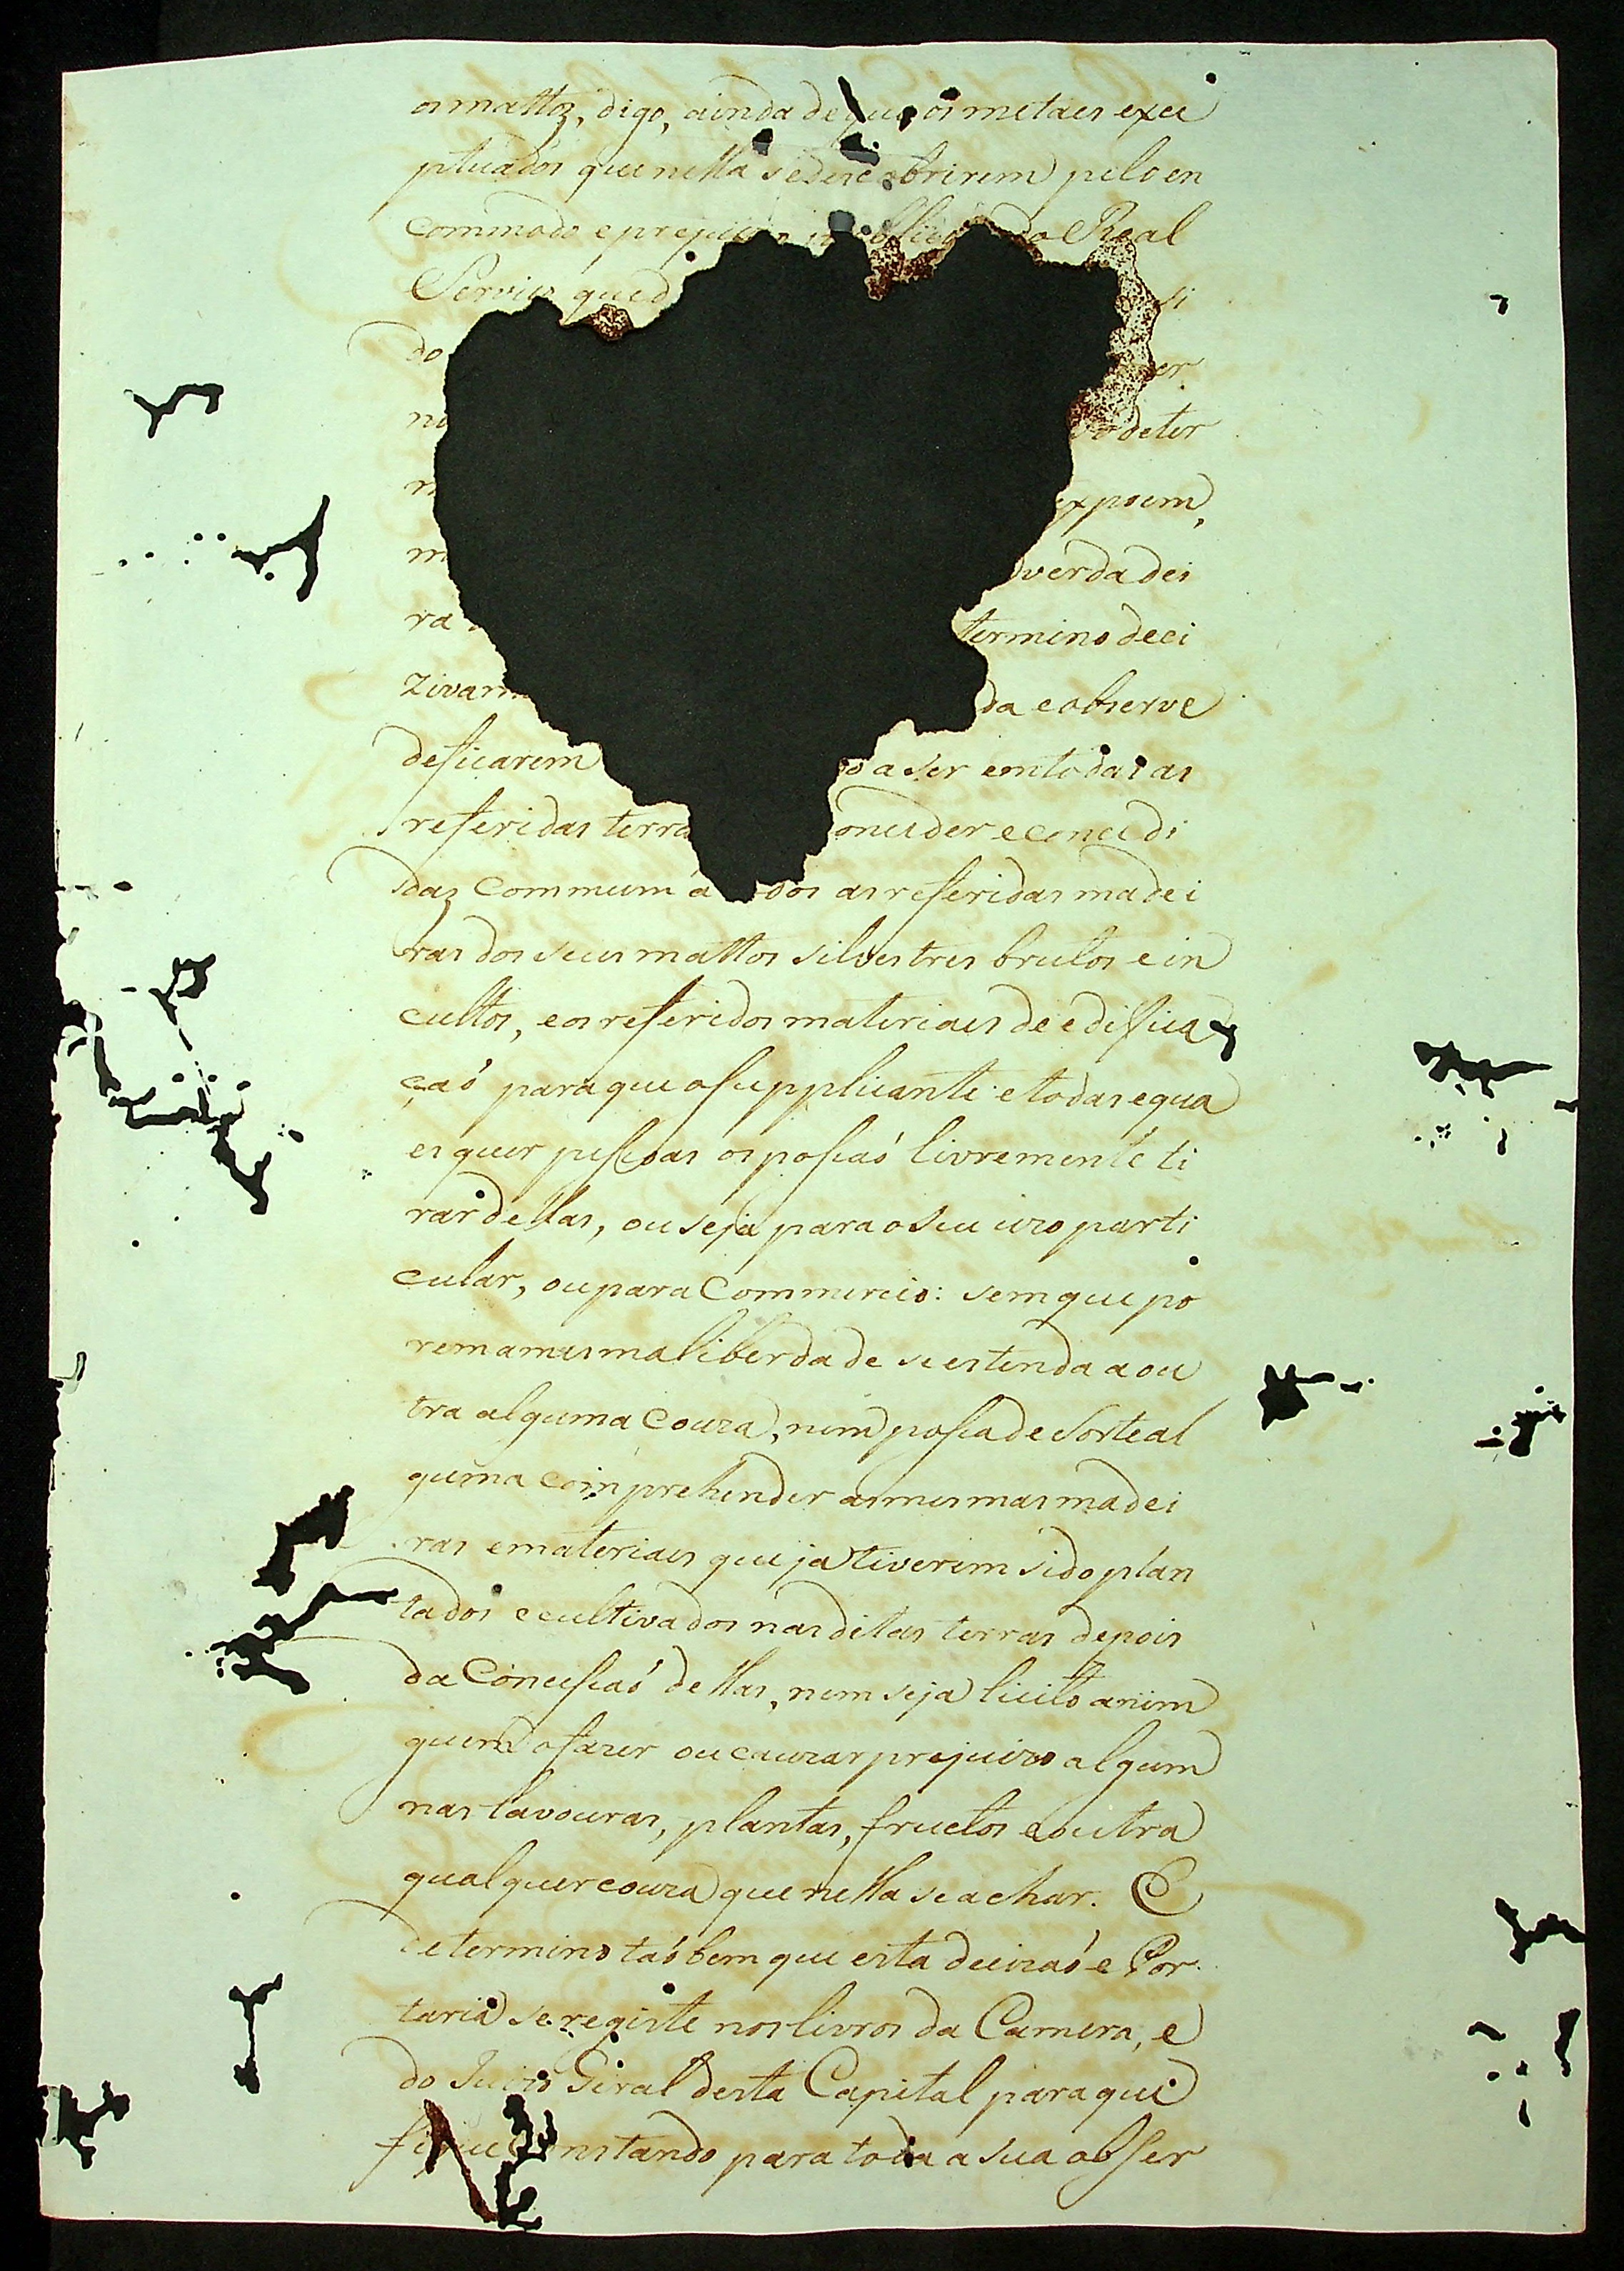 os mattoz, digo, ainda de que os metaes exce
ptuados que nella se descobrirem pelo en
commodo e prejui publico do Real
Servico que d si
do er
ni deter
m expoem,
m verdadei
ra termino deci
zivam da e observe
de ficarem o a ser em todas as
referidas terra onceder e concedi
daz Commum a dos as referidas madei
ras dos seus mattos silvestres brutos e in
cultos, e os referidos materiaes de edifica
çaó para que o supplicante e todas e qua
es quer pessoas os possaó livremente ti
rar dellas, ou seja para o seu uzo parti
cular, ou para Commercio: sem que po
rem a mesma liberdade se estenda a ou
tra alguma Couza, nem possa de Sorte al
guma comprehender as mesmas madei
ras e materiaes que ja tiverem sido plan
tados e cultivados nas ditas terras depois
da Concessaó dellas, nem seja licito a nim
guem o fazer ou cauzar prejuizo algum
nas lavouras, plantas, fructos e outra
qualquer couza que nella se achar. E
determino taóbem que esta decizaó e Por
taria se registe nos livros da Camera, e
do Juizo Geral desta Capital para que
fique Constando para toda a sua obser